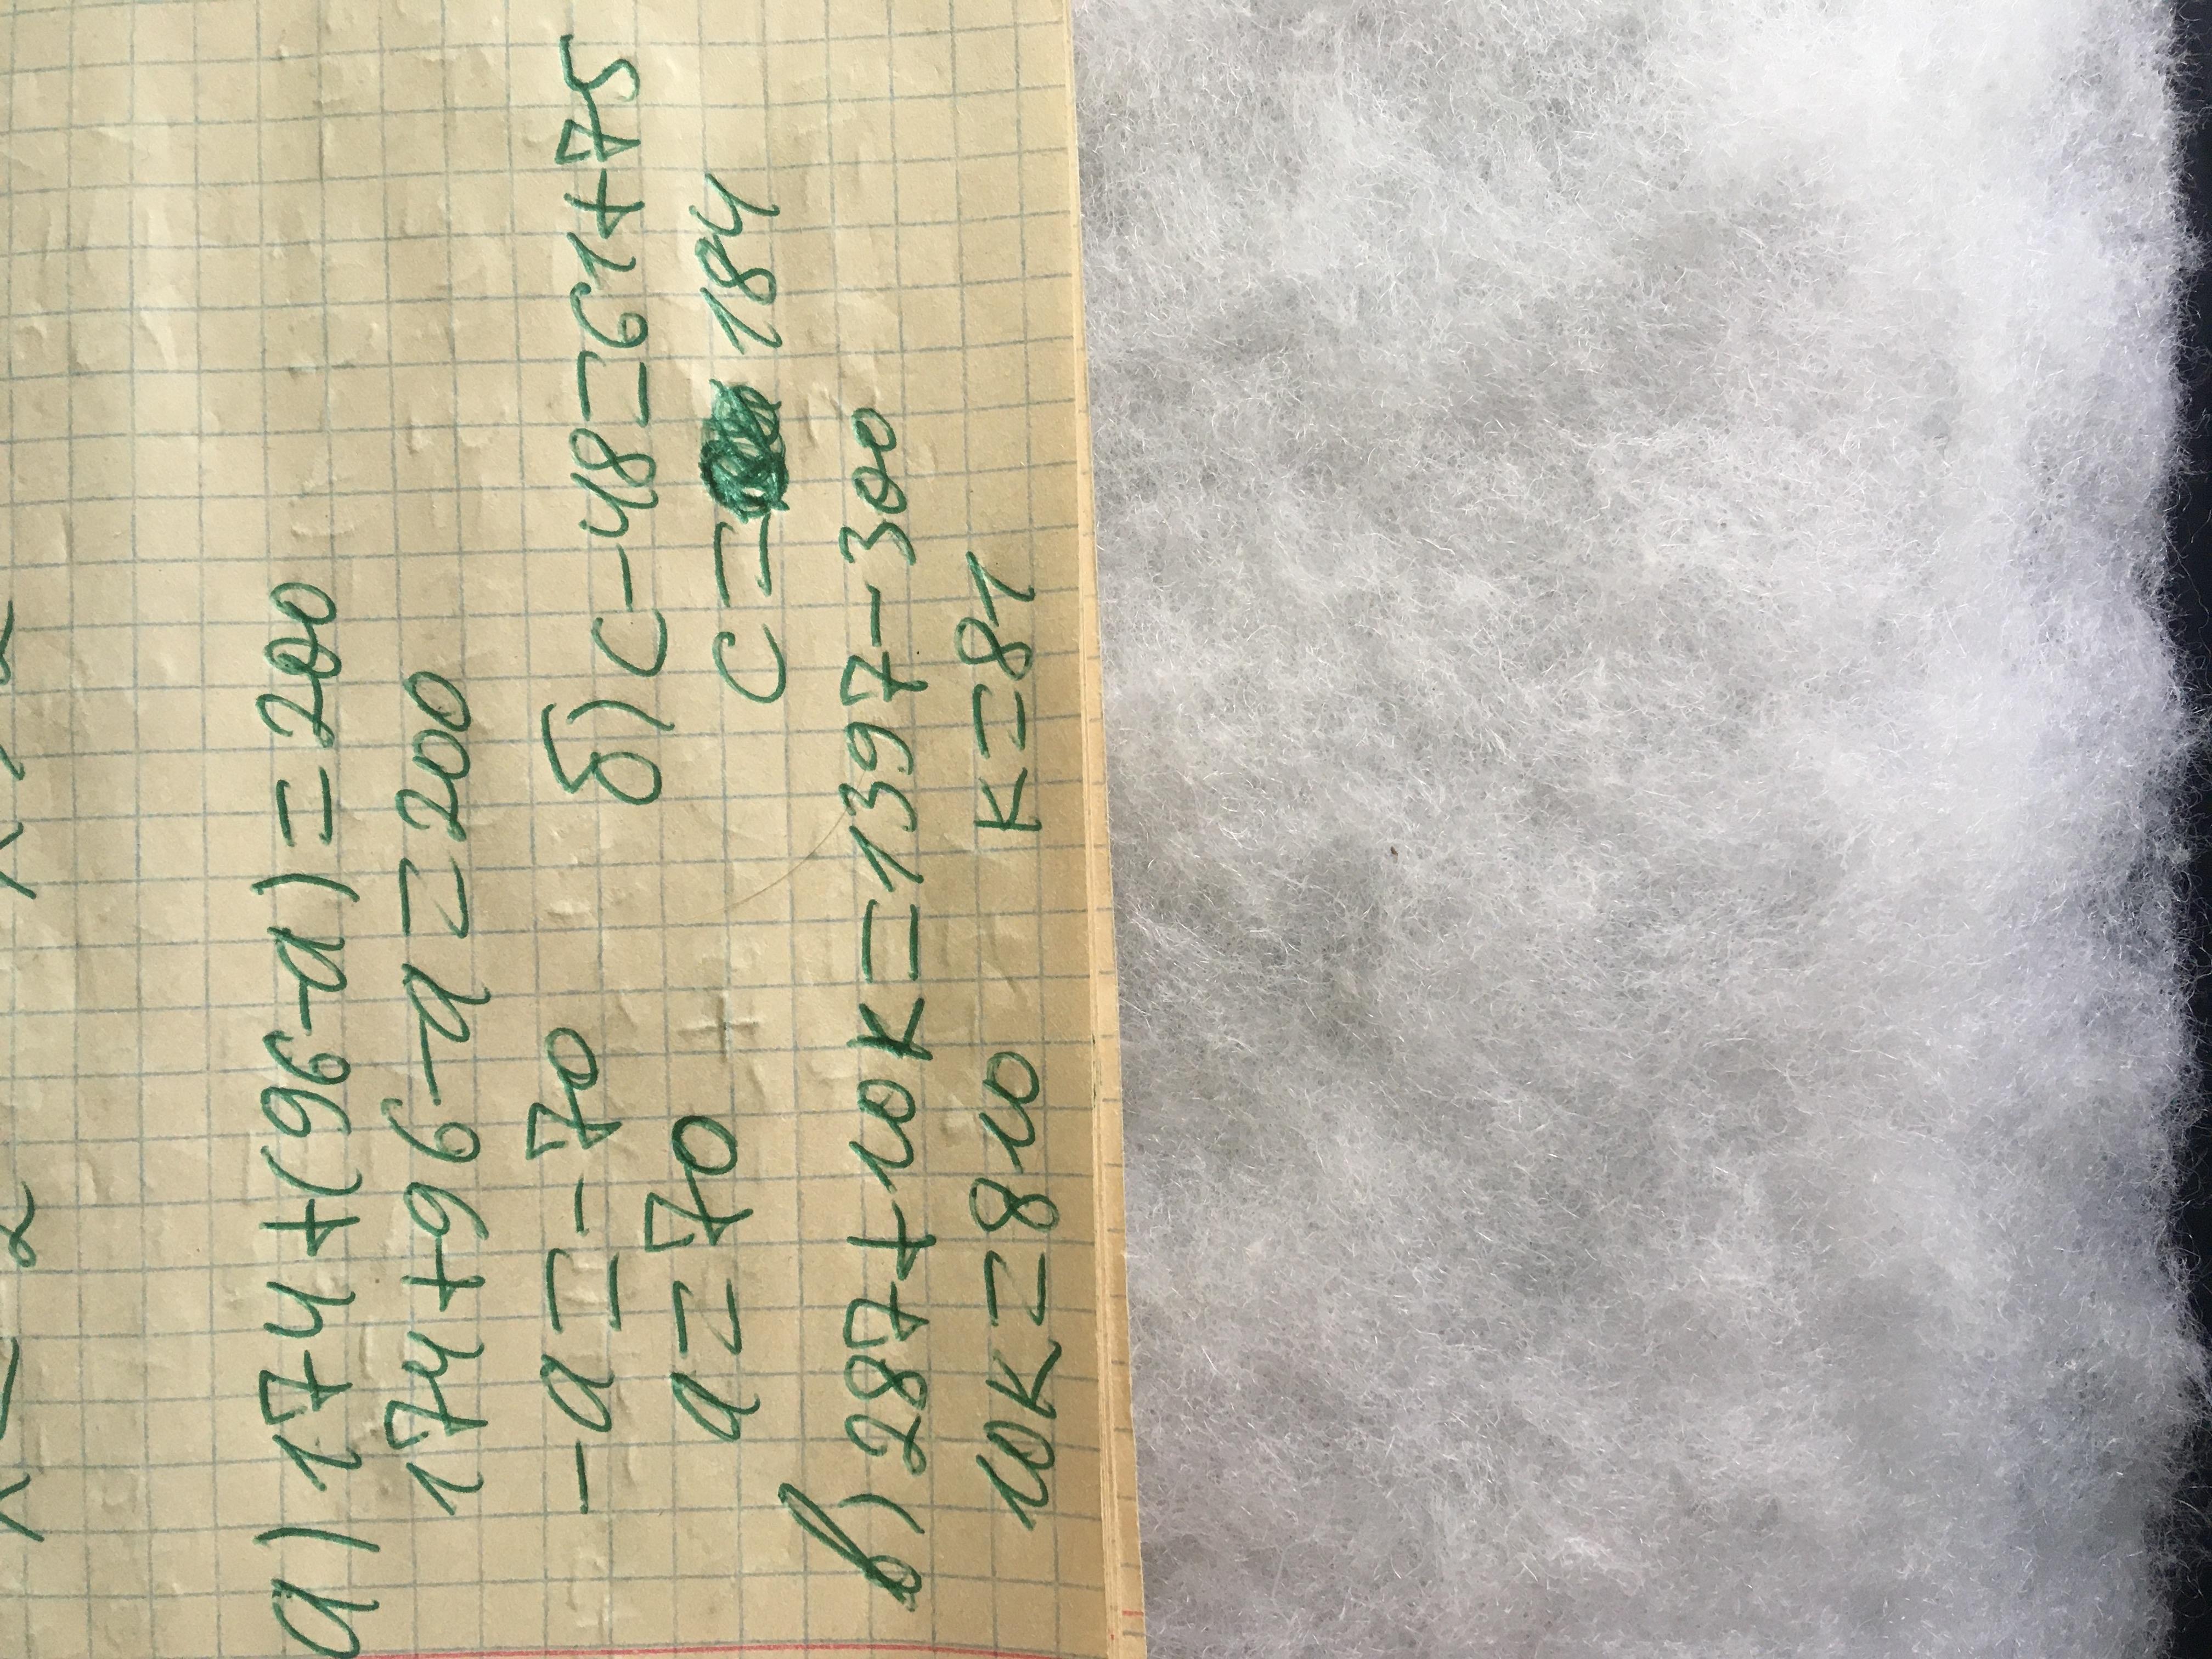 а) 174+(96-а)=200
174+96-а=200
-а=-70
а=70
б) с-48=61+75
с= 184
в) 287+10к=1397-300
10к=810 к=81